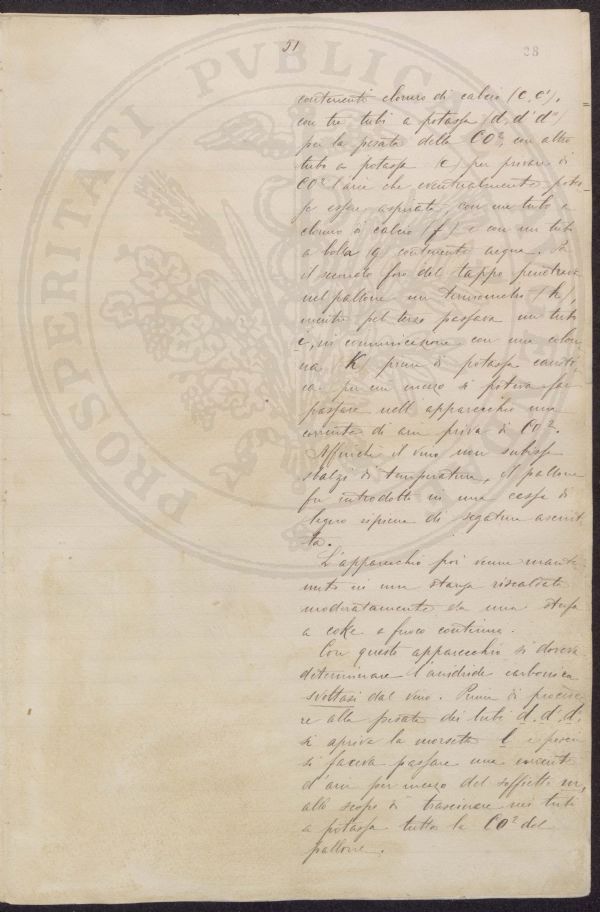 51
28
contenenti cloruro di calcio (c, c'),
con tre tubi a potassa (d, d' d'')
per la pesata della CO², con altro
tubo a potassa (e) per privare di
CO² l'aria che eventualmente potes-
se essere aspirata, con un tubo a
cloruro di calcio (f) e con un tubo
a bolla (g) contenente acqua. Pel
il secondo foro del tappo penetrava
nel pallone un termometro (h),
mentre pel terzo passava un tubo
i, in comunicazione con una colon-
na K piena di potassa causti-
ca per cui mezzo si poteva far
passare nell'apparecchio una
corrente di aria priva di CO².
Affinché il vino non subisse
sbalzi di temperatura, il pallone
fu introdotto in una cassa di
legno ripiena di segatura asciut-
ta.
L'apparecchio poi venne mante-
nuto in una stanza riscaldata
moderatamente da una stufa
a coke a fuoco continuo.
Con questo apparecchio si doveva
determinare l'anidride carbonica
svoltasi dal vino. Prima di procede-
re alla pesata dei tubi d, d, d,
si apriva la morsetta l e poscia
si faceva passare una corrente
d'aria per mezzo del soffietto m,
allo scopo di trascinare nei tubi
a potassa tutta la CO² del
pallone.
PROSPERITATI PVBLICAE